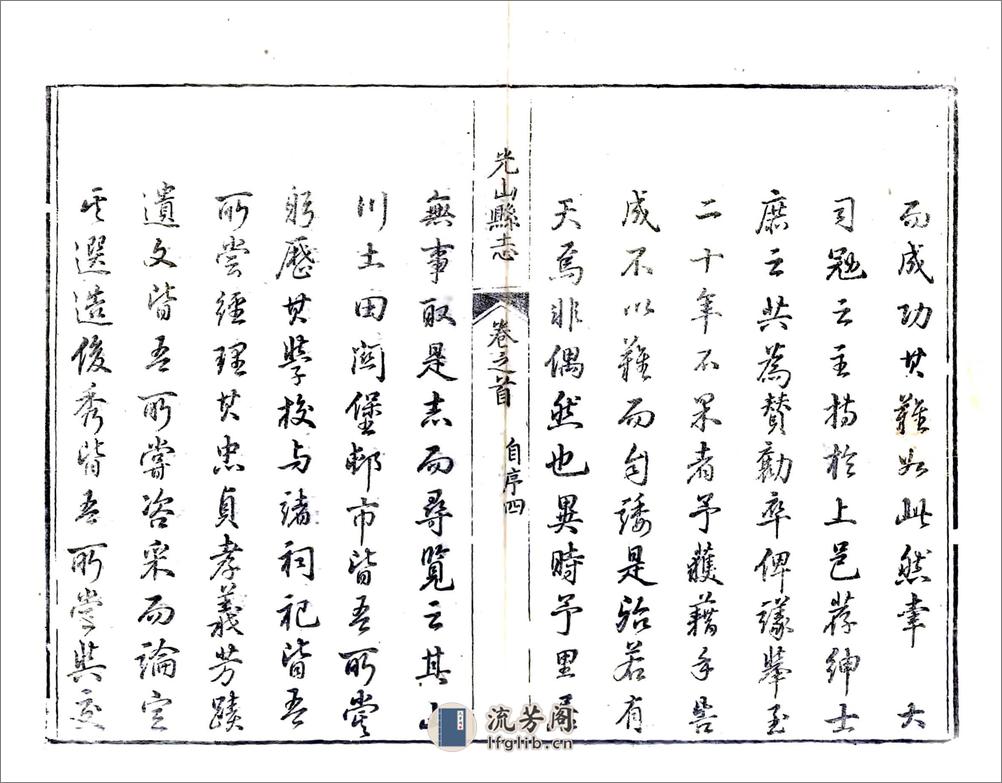 而成功其難如此然幸大
司冠云主持於上邑荐紳士
庶云共為贊勸卒俾議舉至
二十年不果者予獲藉手告
成不以難而自諉是殆若有
天焉非偶然也異時予里居
光山縣志
卷之首
自序四
無事取是志而尋覽云其山
川土田関堡郵市皆吾所嘗
躬歷其學校与諸祠祀皆吾
所嘗經理其忠貞孝義芳蹟
遺文皆吾所嘗咨采而論定
其選造俊秀皆吾所嘗與交
流芳阁
lfglib.cn